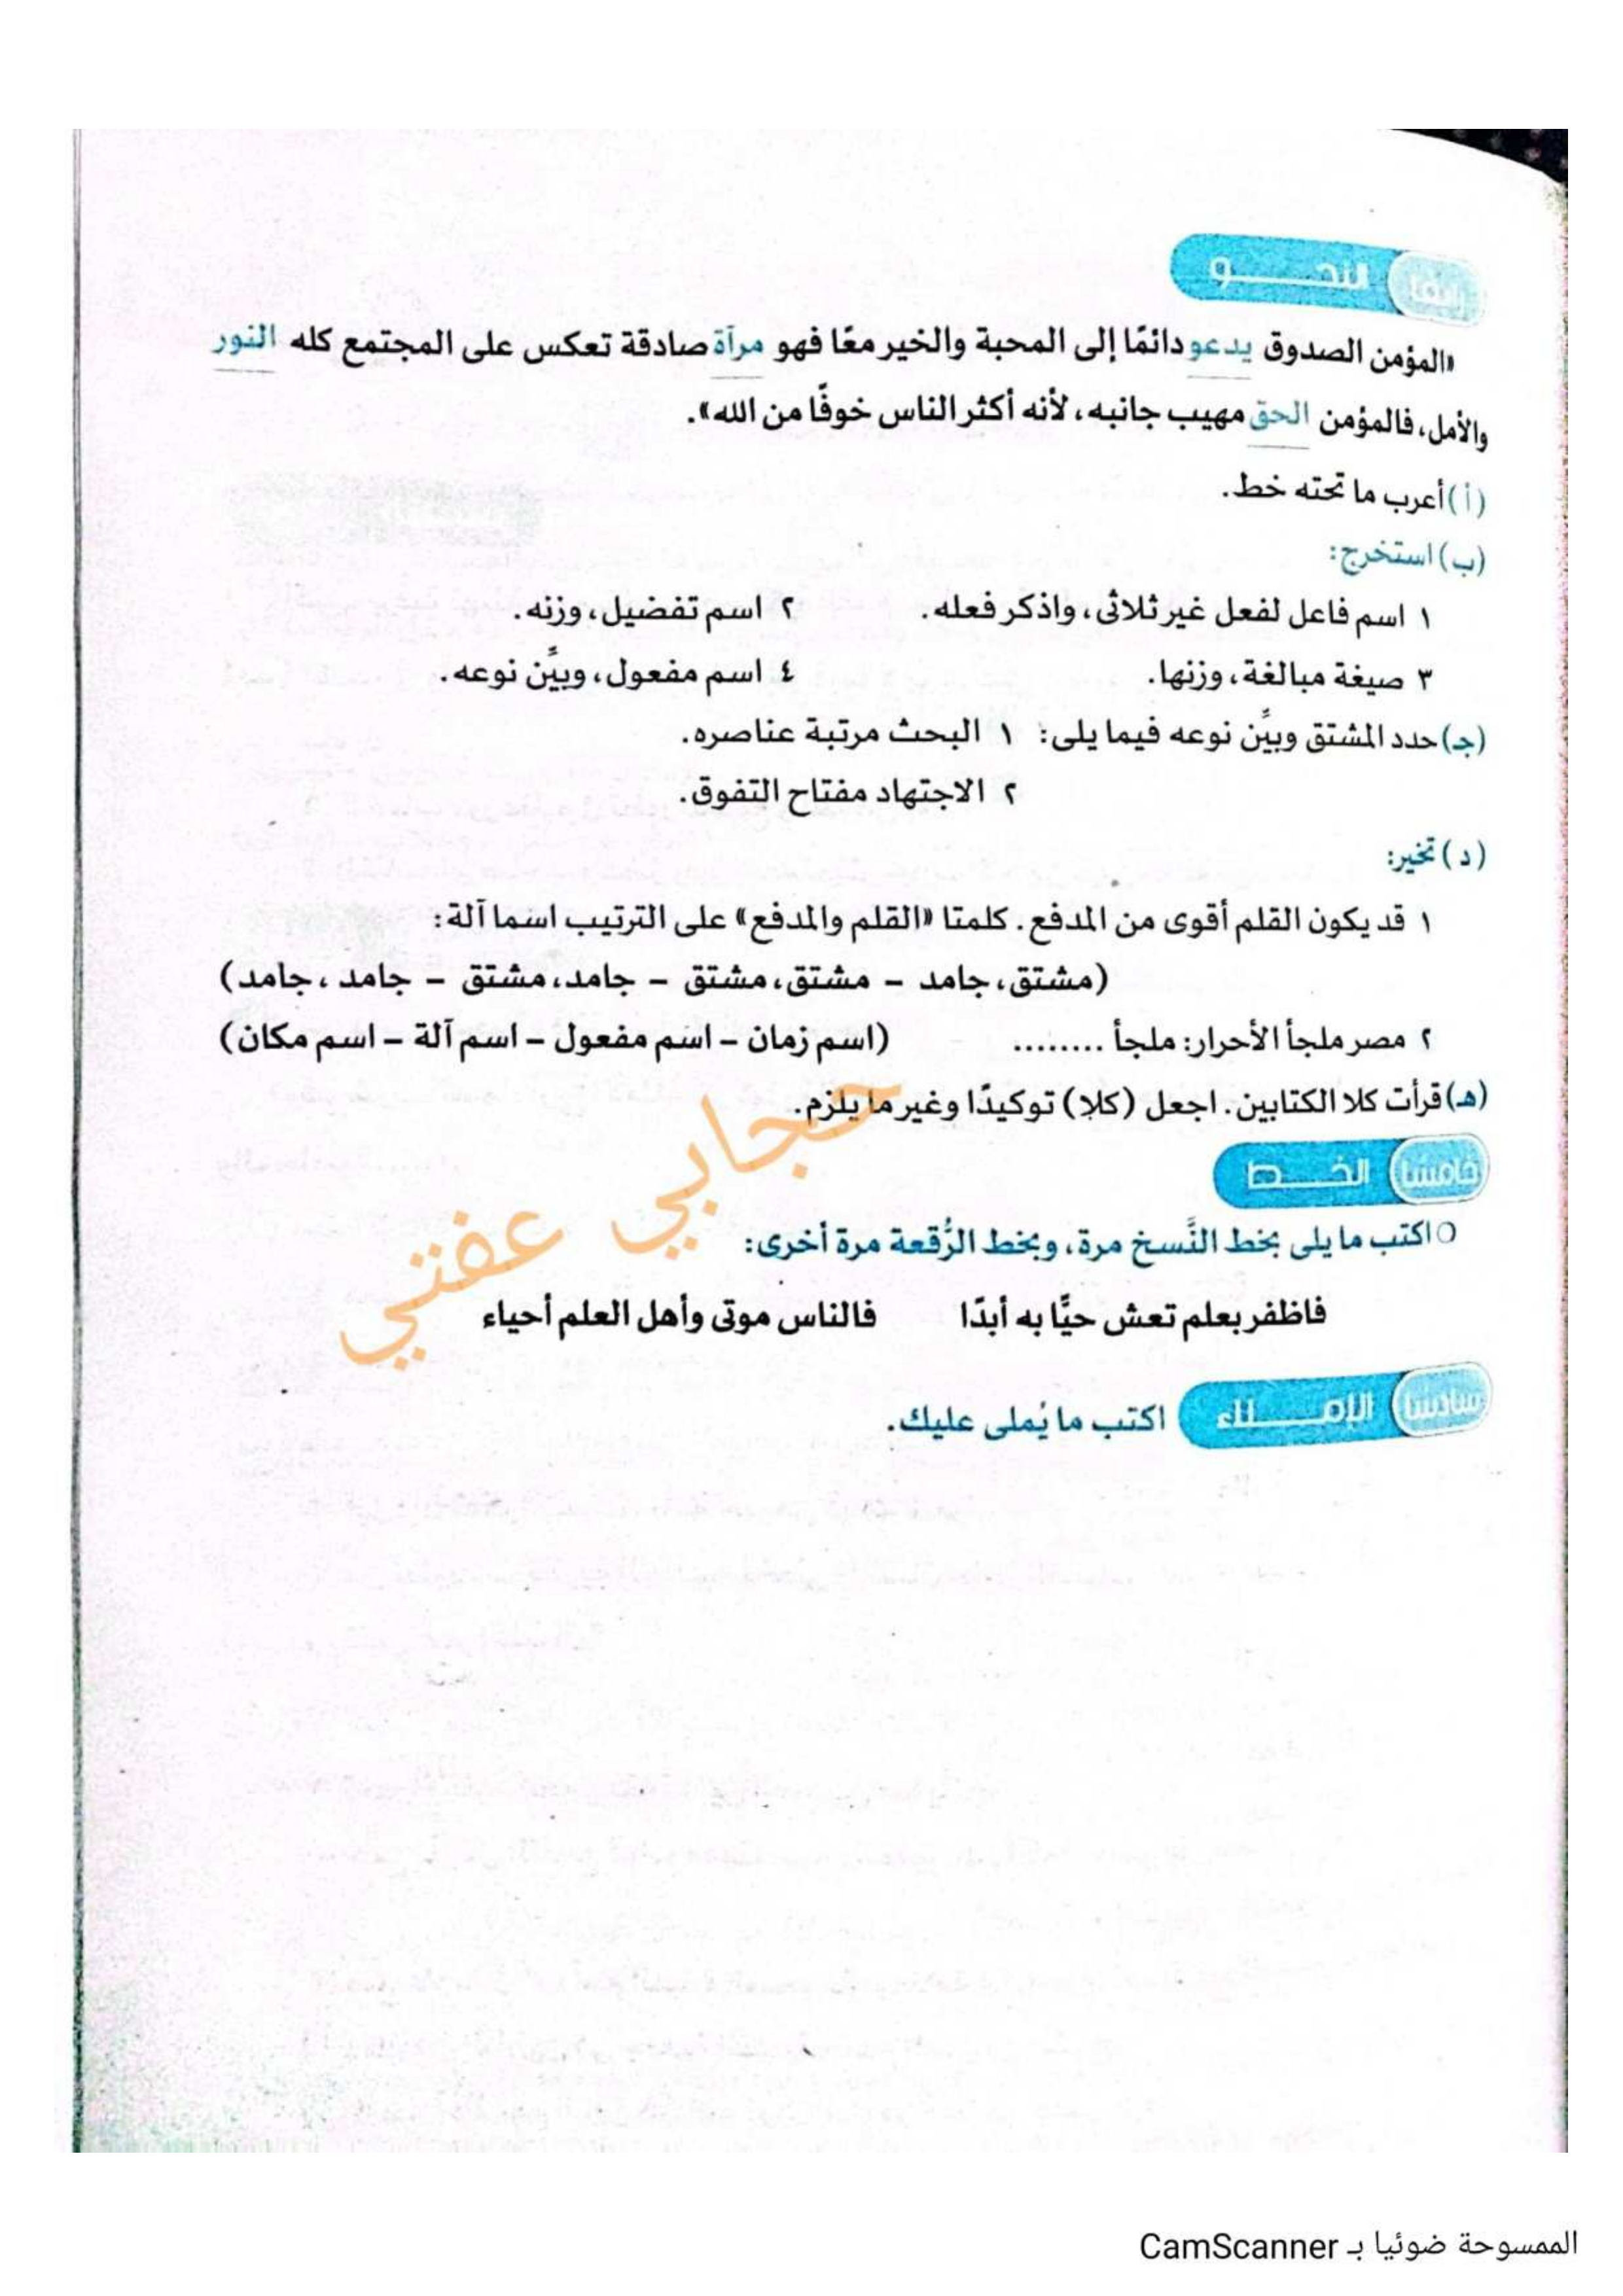 رابعًا النحــــو
«المؤمن الصدوق يدعو دائمًا إلى المحبة والخير معًا فهو مرآة صادقة تعكس على المجتمع كله النور
والأمل، فالمؤمن الحق مهيب جانبه، لأنه أكثر الناس خوفًا من الله».
(أ) أعرب ما تحته خط.
(ب) استخرج:
١ اسم فاعل لفعل غير ثلاثى، واذكر فعله. ٢ اسم تفضيل، وزنه.
٣ صيغة مبالغة، وزنها. ٤ اسم مفعول، وبيِّن نوعه.
(جـ) حدد المشتق وبيِّن نوعه فيما يلى: ١ البحث مرتبة عناصره.
٢ الاجتهاد مفتاح التفوق.
(د) تخير:
١ قد يكون القلم أقوى من المدفع. كلمتا «القلم والمدفع» على الترتيب اسما آلة:
(مشتق، جامد – مشتق، مشتق – جامد، مشتق – جامد، جامد)
٢ مصر ملجأ الأحرار: ملجأ ........ (اسم زمان – اسم مفعول – اسم آلة – اسم مكان)
(هـ) قرأت كلا الكتابين. اجعل (كلا) توكيدًا وغير ما يلزم.
خامسًا الخــــط
اكتب ما يلى بخط النَّسخ مرة، وبخط الرُّقعة مرة أخرى:
فاظفر بعلم تعش حيًّا به أبدًا فالناس موتى وأهل العلم أحياء
سادسًا الإمــــلاء اكتب ما يُملى عليك.
حجابي عفتي
الممسوحة ضوئيا بـ CamScanner